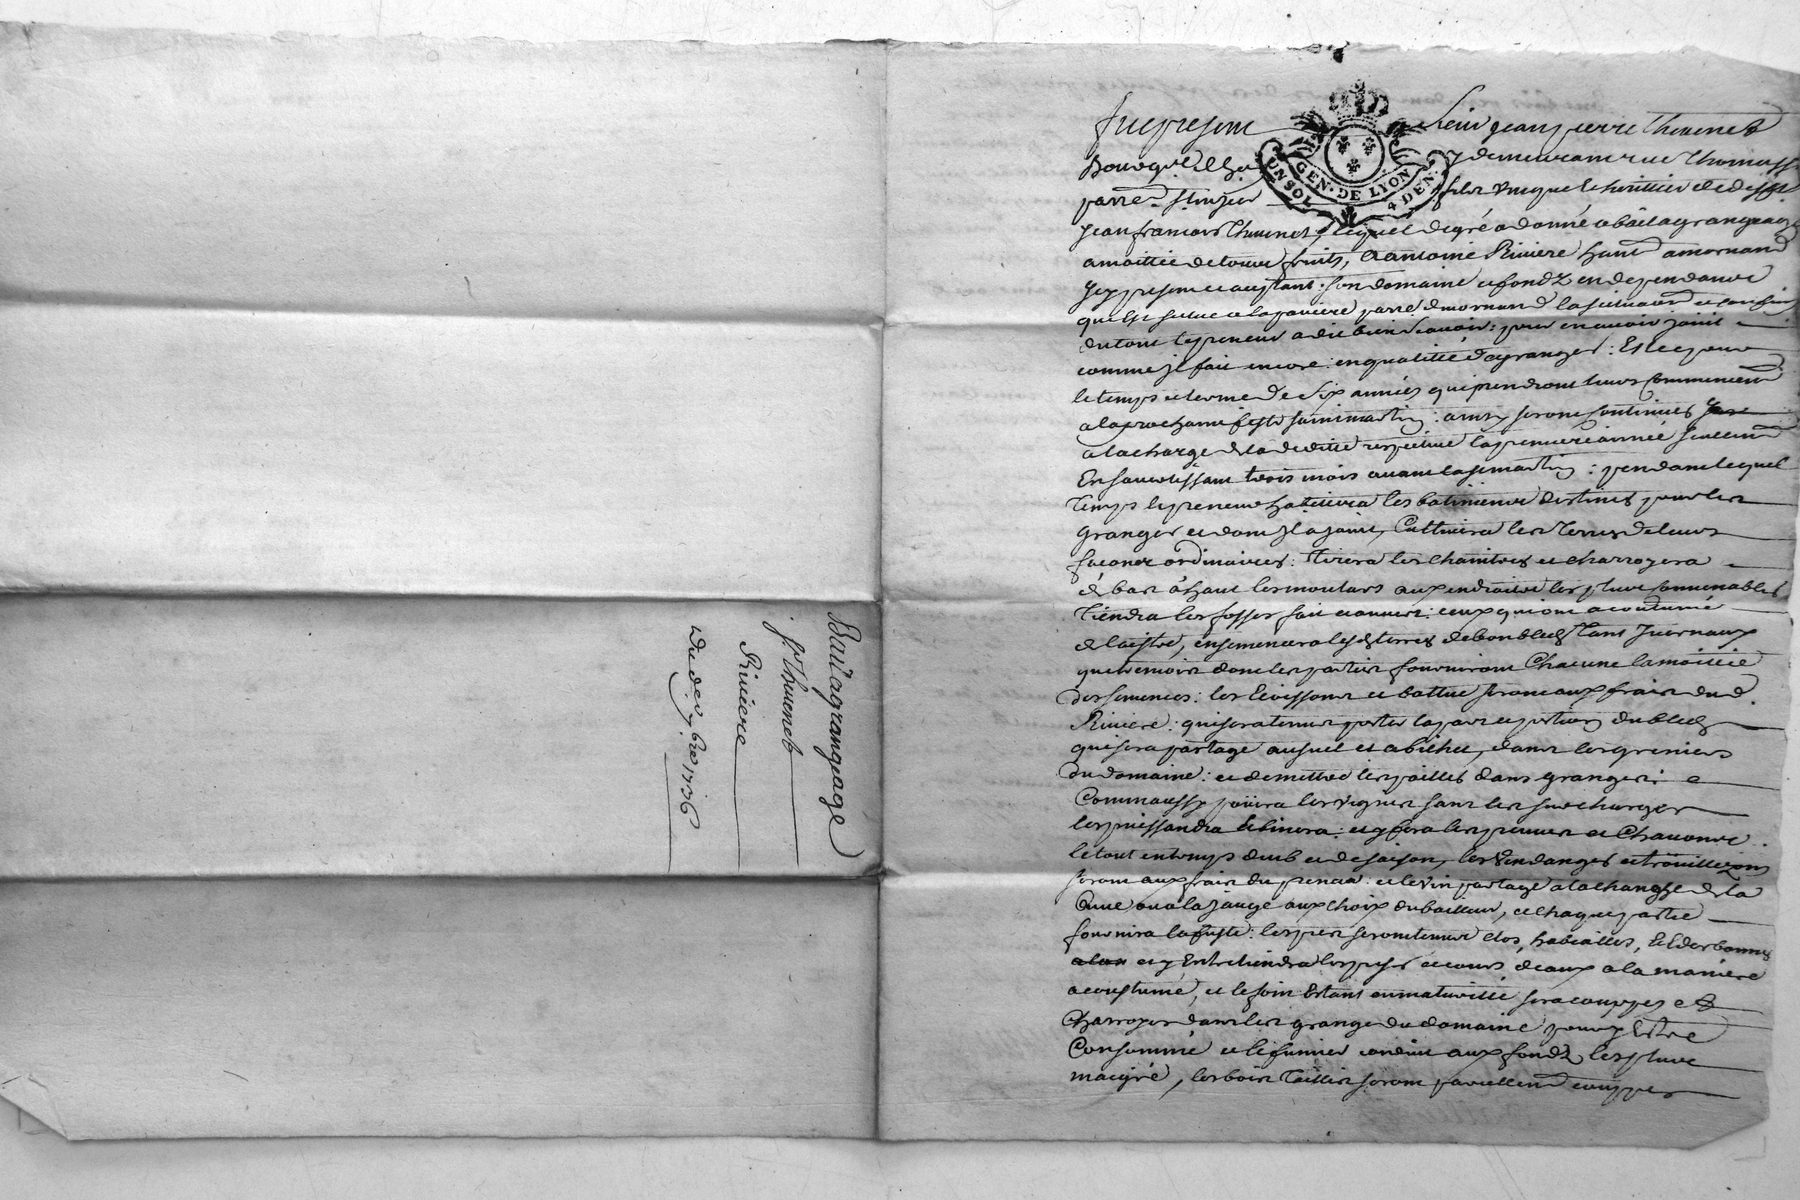 Bail a grangeage
Sr. Thuenet
Riviere
Du dex 9bre 1736
GEN. DE LYON
UN SOL
4 DEN.
fut present Sieur Jean pierre Thuenet
Bourgs. de demeurant rue Thomass
parre. St nizier fils unique et heritier de deffunt
Jean francois Thuenet, lequel de gré a donné a bail a grangeage
a moittié de tous fruits, a antoine Riviere habt. a mornand
Icy present et aceptant: son domaine et fondz en dependants
quil a situé a la paviere parre. de mornand la situation et confins
du tout le preneur a dit bien scavoir: pour en avoir joui
comme il fait encore en qualitté de granger: Et ce pour
le temps et terme de six années qui prendront leurs commencemt.
a la prochaine feste saint martin: ainsy seront continués
a la charge de la deditte respective la premiere année seullemt.
En savertissant trois mois avant la st martin: pendant lequel
temps le preneur habittera les batiments destinés pour les
grangers et dont il a joui, Cultivera les terres de leurs
façons ordinaires: tirera les chaintres et charroyera
de bas à haut les moutars aux endroits les plus convenables
Tiendra les fosses fait et ouvert: ceux qui ont acoutumé
de l'estre, ensemencera lesd. terres de bon bled tant Ivernaux
que tremois dont les parties fourniront Chacune la moitié
des semences: les moissons et battue seront aux frais dud.
Riviere: qui sera tenu porter la part et portion du bled
qui sera partagé au suel et a bichet, dans les greniers
du domaine: et de mettre les pailles dans granger: e
Comm'aussy jouira les vignes sans les surcharger
les puissandra et binera: et y fera les preuves et Chavonnes
le tout en temps dub et de saison, les vendanges et trouillezons
seront aux frais du preneur: et le vin partagé a la change de la
Cuve ou a la jauge aux choix du bailleur, et chaque partie
fournira la fuste: les prez seront tenus clos, habeallés, Et derbonnes
et y Entretiendra les peches et cours d'eaux a la maniere
acoustumé, et le foin Estant en maturitté sera couppez et
Charroyer dans les grange du domaine pour y Estre
Consummé et le fumier conduit aux fondz les plus
maigre, les bois taillis seront pareillemt. couppes